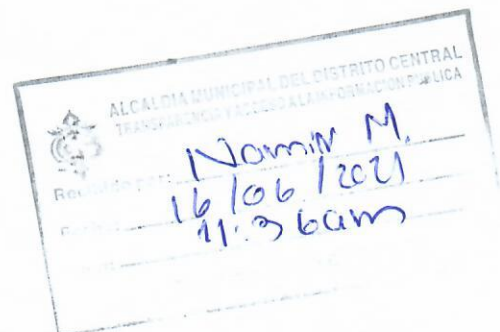 ALCALDIA MUNICIPAL DEL DISTRITO CENTRAL
TRANSPARENCIA Y ACCESO A LA INFORMACION PUBLICA
Recibido por: Nomin M.
16/06/2021
11:36am